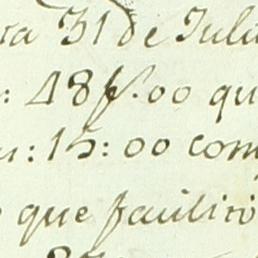 31 de Julu
: 48 f. 00 qu
: 15: 00 com
que facilit